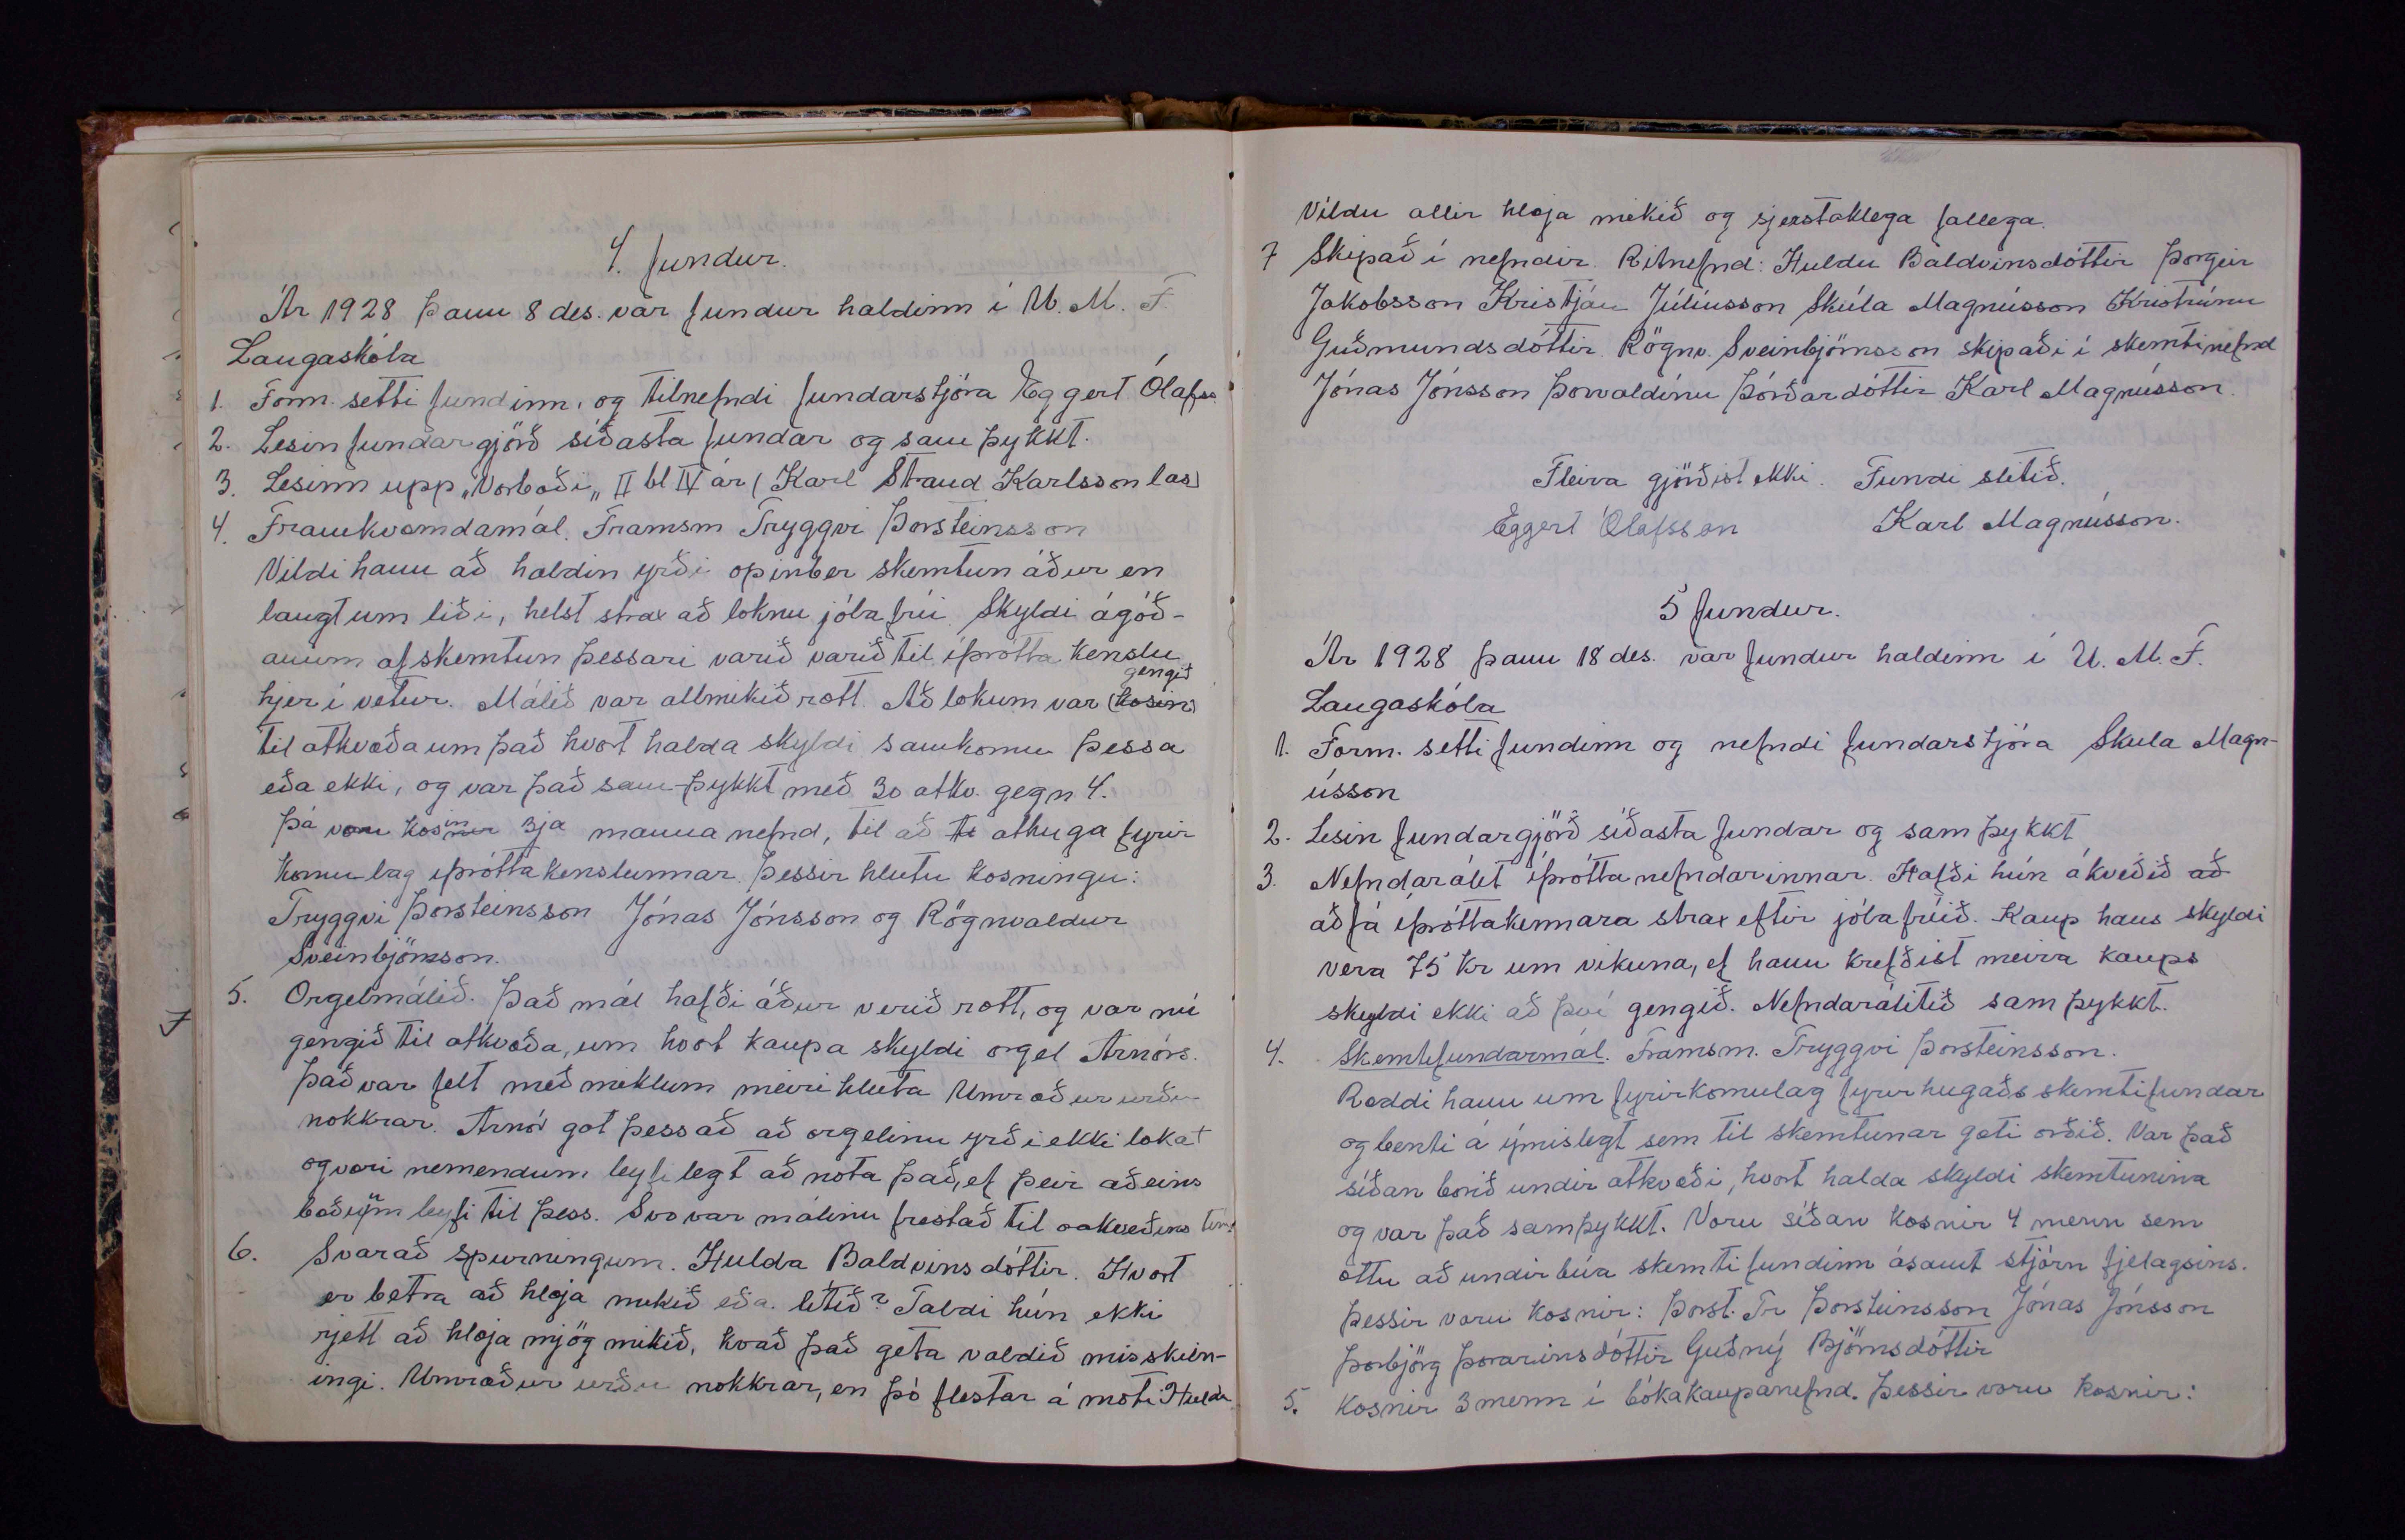 4. fundur.
Ár 1928 þann 8 des. var fundur haldinn í U. M. F.
Laugaskóla
1. Form. setti fundinn, og tilnefndi fundarstjóra Eggert Ólafss.
2. Lesin fundargjörð síðasta fundar og samþykkt.
3. Lesinn upp „Vorboði„ II bl IV ár (Karl Strand Karlsson las)
4. Framkvæmdamál. Framsm Tryggvi Þorsteinsson
Vildi hann að haldin yrði opinber skemtun áður en
langt um liði, helst strax að loknu jólafríi Skyldi ágóð-
anum af skemtun þessari varið varið til íþrótta kenslu
hjer í vetur. Málið var allmikið rætt. Að lokum var (kosin) gengið
til atkvæða um það hvort halda skyldi samkomu þessa
eða ekki, og var það samþykkt með 30 atkv. gegn 4.
Þá var kosin 3ja manna nefnd, til að athuga fyrir
komulag íþróttakenslunnar. Þessir hlutu kosningu:
Tryggvi Þorsteinsson Jónas Jónsson og Rögnvaldur
Sveinbjörnsson.
5. Orgelmálið. Það mál hafði áður verið rætt, og var nú
gengið til atkvæða, um hvort kaupa skyldi orgel Arnórs.
Það var felt með miklum meiri hluta Umræður urðu
nokkrar. Arnór gat þess að að orgelinu yrði ekki lokat
og væri nemendum leyfilegt að nota það, ef þeir aðeins
bæðu um leyfi til þess. Svo var málinu frestað til óakveðins tíma
6. Svarað spurningum. Hulda Baldvinsdóttir. Hvort
er betra að hlæja mikið eða lítið? Taldi hún ekki
rjett að hlæja mjög mikið, kvað það geta valdið misskiln-
ingi. Umræður urðu nokkrar, en þó flestar á móti Huldu
Vildu allir hlæja mikið og sjerstaklega fallega.
7 Skipað í nefndir. Ritnefnd: Huldu Baldvinsdóttir Þorgeir
Jakobsson Kristján Júlíusson Skúla Magnússon Kristrúnu
Guðmundsdóttir. Rögnv. Sveinbjörnsson skipaði í skemtinefnd
Jónas Jónsson Þorvaldínu Þórðardóttir Karl Magnússon.
Fleira gjörðist ekki. Fundi slitið.
Eggert Ólafsson Karl Magnússon.
5 fundur.
Ár 1928 þann 18 des. var fundur haldinn í U. M. F.
Laugaskóla
1. Form. setti fundinn og nefndi fundarstjóra Skula Magn-
ússon
2. Lesin fundargjörð síðasta fundar og samþykkt
3. Nefndarálit íþróttanefndarinnar. Hafði hún ákveðið að
að fá íþróttakennara strax eftir jólafríið. Kaup hans skyldi
vera 75 kr um vikuna, ef hann krefðist meira kaups
skyldi ekki að því gengið. Nefndarálitið samþykkt.
4. Skemtifundarmál. Framsm. Tryggvi Þorsteinsson.
Ræddi hann um fyrirkomulag fyrirhugaðs skemtifundar
og benti á ýmislegt sem til skemtunar gæti orðið. Var það
síðan borið undir atkvæði, hvort halda skyldi skemtunina
og var það samþykkt. Voru síðan kosnir 4 menn sem
áttu að undirbúa skemtifundinn ásamt stjórn fjelagsins.
Þessir voru kosnir: Þorst. Tr Þorsteinsson Jónas Jónsson
Þorbjörg Þorarinsdóttir Guðný Björnsdóttir
5. Kosnir 3 menn í bókakaupanefnd. Þessir voru kosnir: